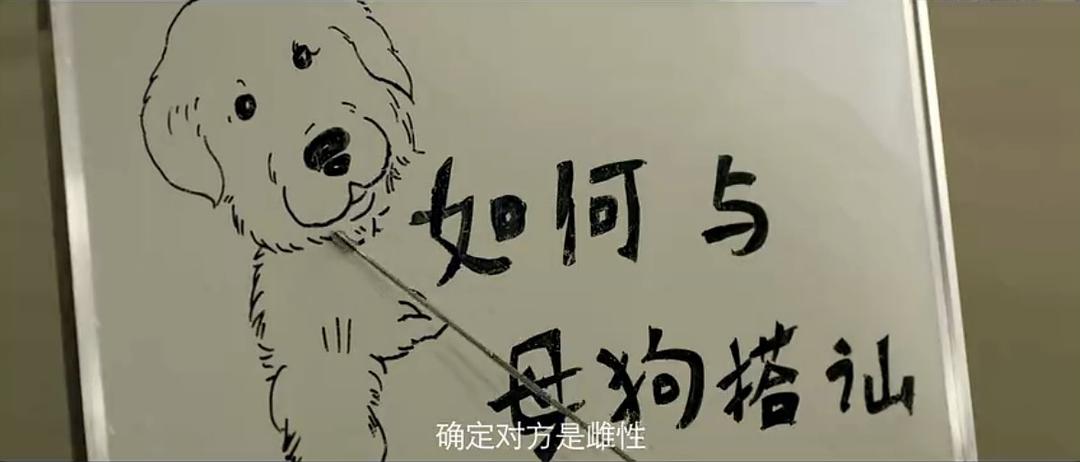 如何与
母狗搭讪
确定对方是雌性